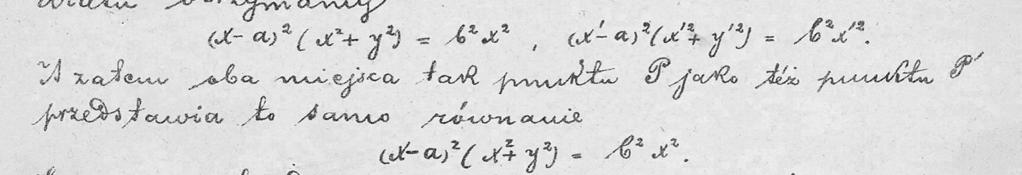 otrzymamy
(x-a)²(x²+y²) = b²x², (x'-a)²(x'²+y'²) = b²x'².
A zatem oba miejsca tak punktu P jako też punktu P'
przedstawia to samo równanie
(x-a)²(x²+y²) = b²x².